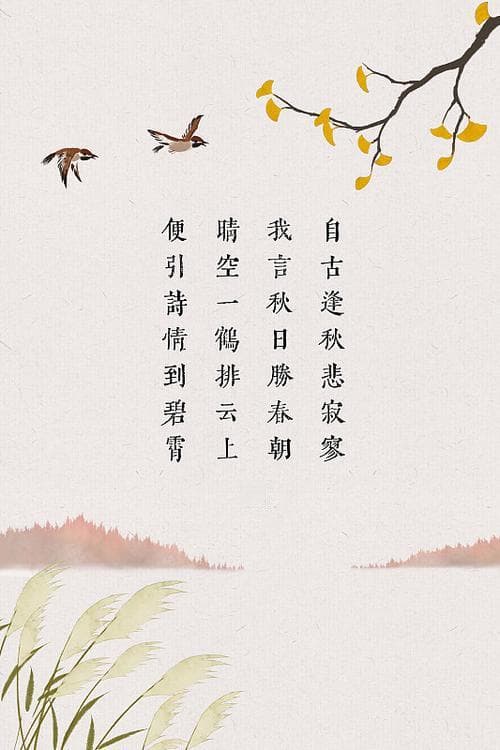 自古逢秋悲寂寥
我言秋日勝春朝
晴空一鶴排云上
便引詩情到碧霄